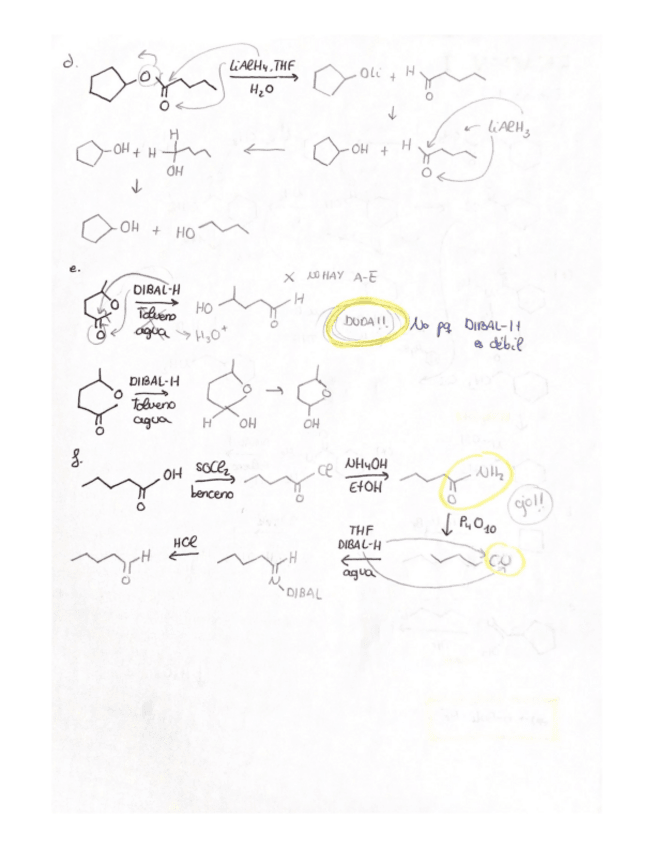 d.
O
O
LiAlH4, THF
H2O
OLi + H
O
OH + H
H
OH
OH + H
O
LiAlH3
OH + HO
e.
O
O
DIBAL-H
Tolueno
agua
H3O+
HO
H
O
X NO HAY A-E
DUDA!!
No pq DIBAL-H
es débil
O
O
DIBAL-H
Tolueno
agua
O
H OH
O
OH
f.
OH
O
SOCl2
benceno
Cl
O
NH4OH
EtOH
NH2
O
ojo!!
P4O10
THF
DIBAL-H
agua
CN
H
N
DIBAL
HCl
H
O